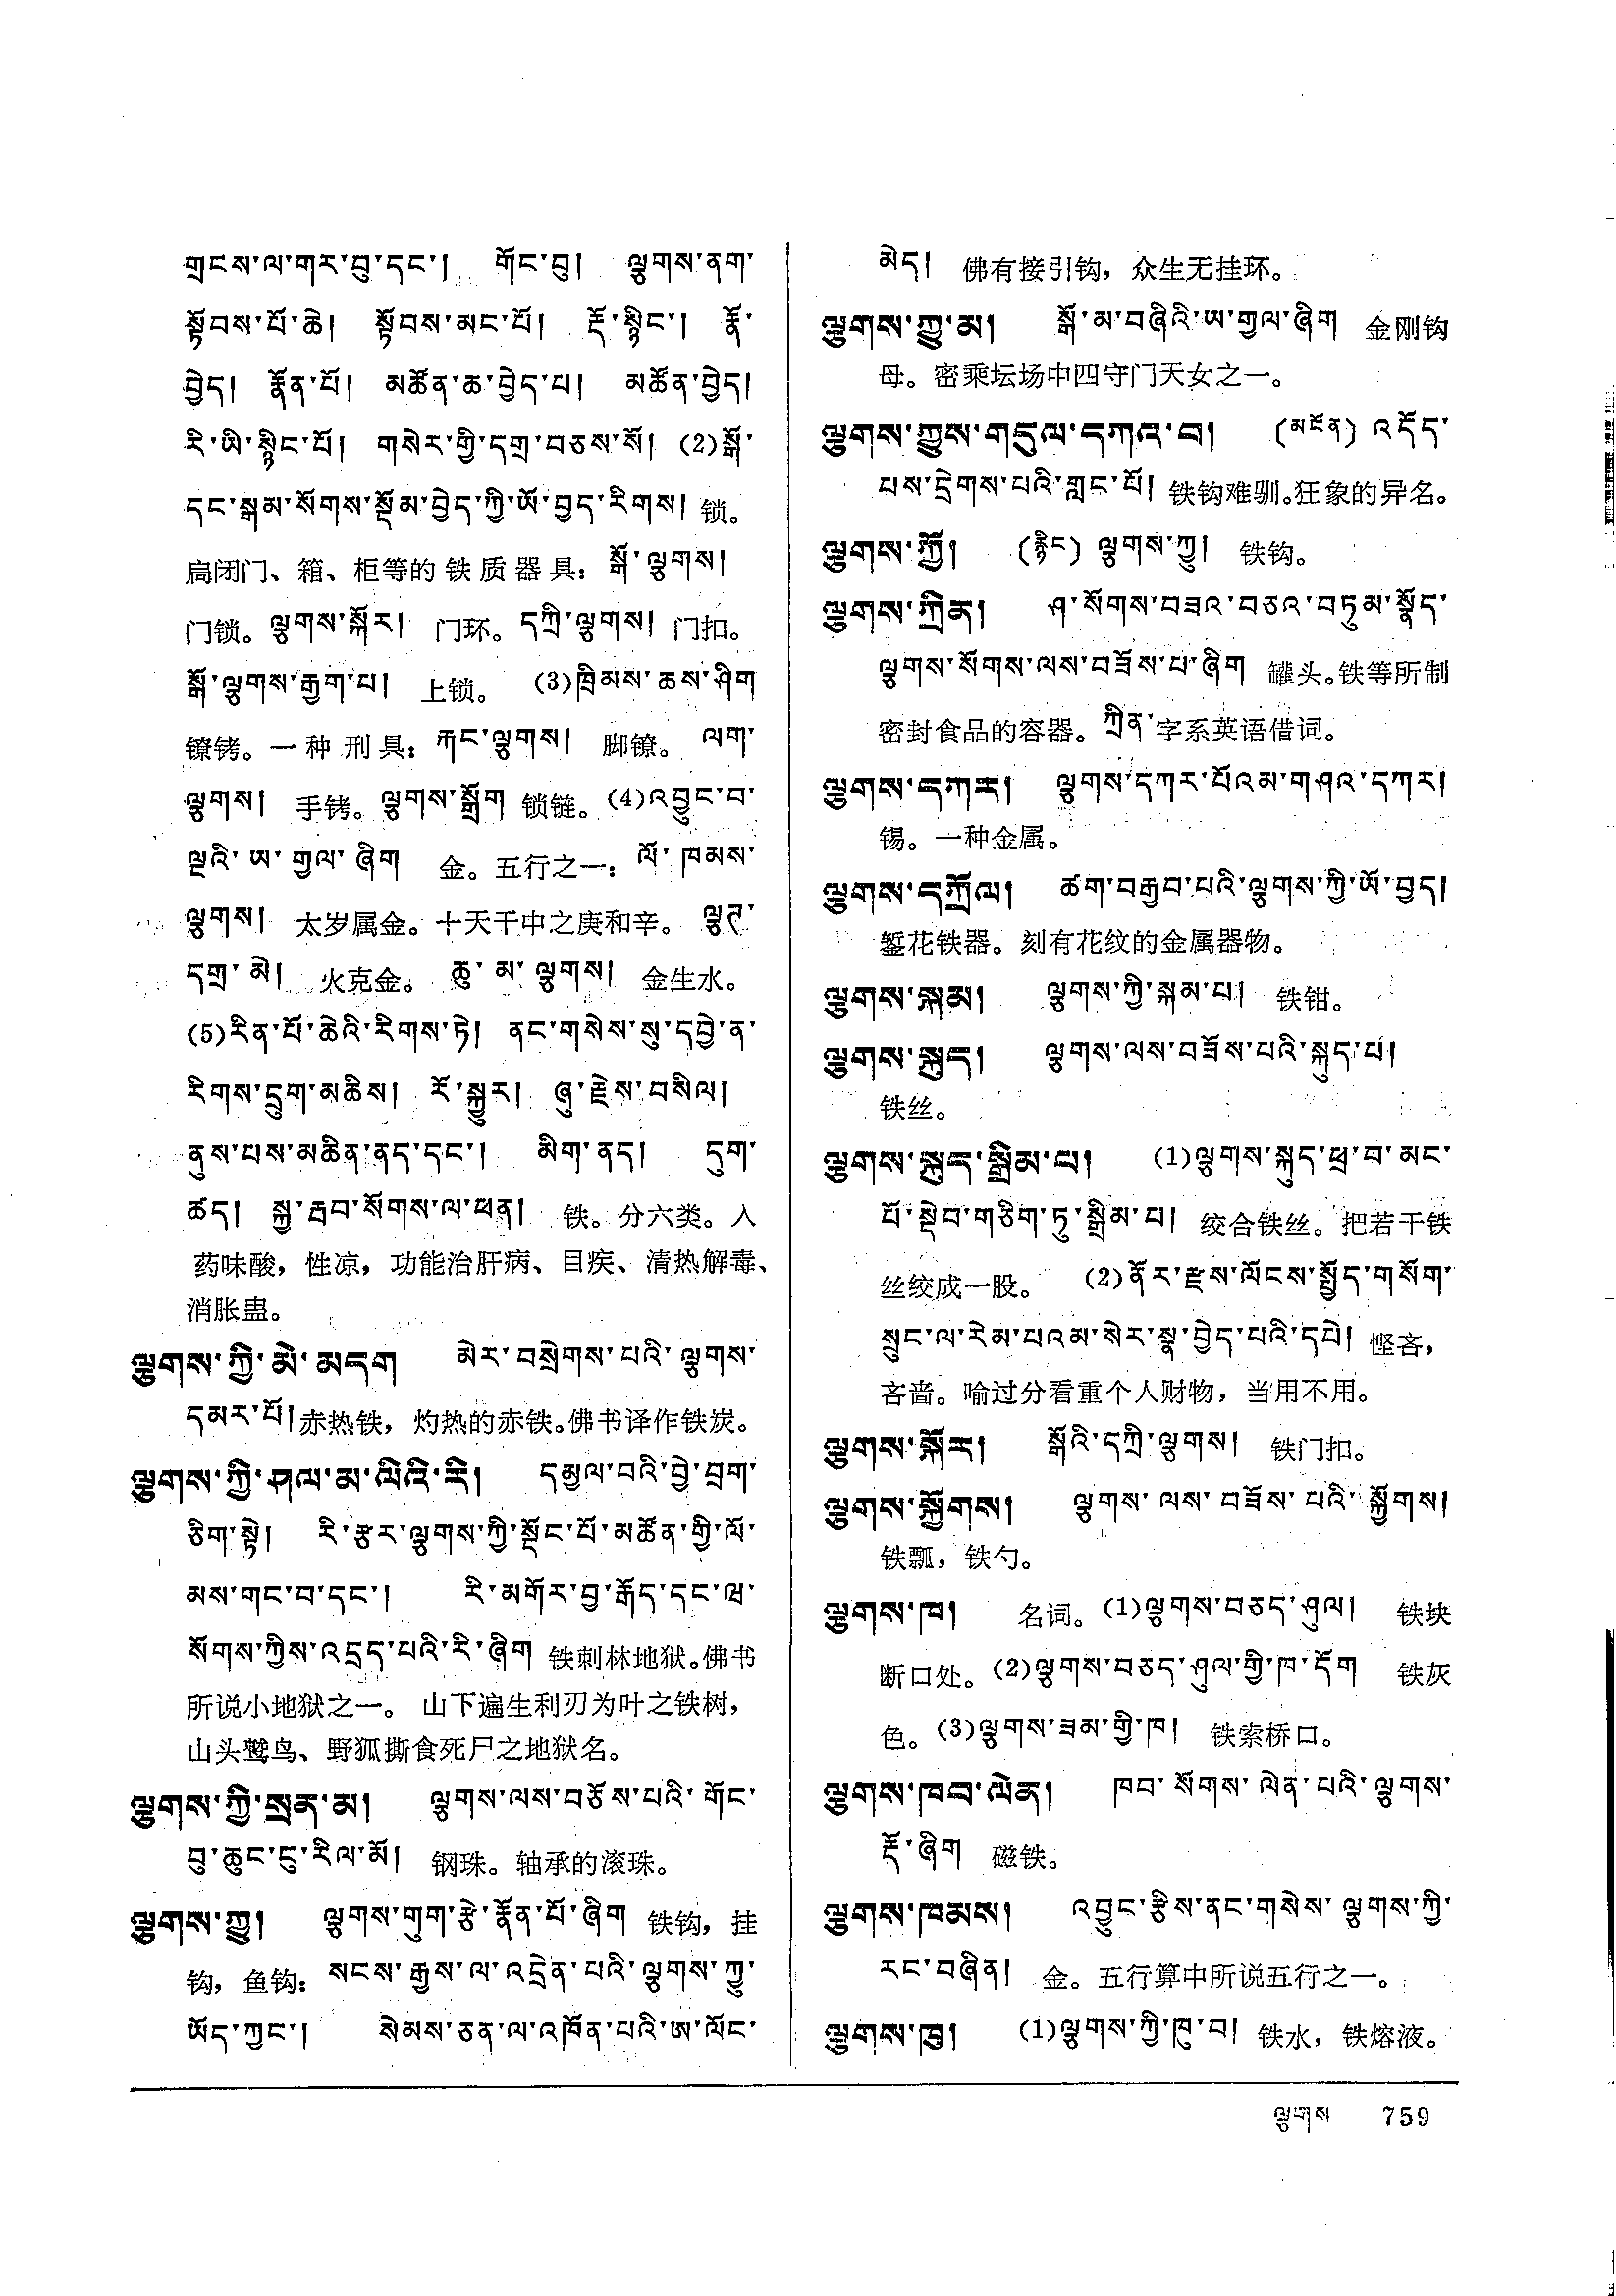 གྲངས་ལ་གར་བུ་དང་། གོང་བུ། ལྕགས་ནག་
སྟོབས་པོ་ཆེ། སྟོབས་མང་པོ། རྡོ་སྙིང་། རྣོ་
བྱེད། རྣོན་པོ། མཚོན་ཆ་བྱེད་པ། མཚོན་བྱེད།
རི་ཡི་སྙིང་པོ། གསེར་གྱི་དགྲ་བཅས་སོ། (2)སྒོ་
དང་སྒམ་སོགས་སྡོམ་བྱེད་ཀྱི་ཡོ་བྱད་རིགས། 锁。
扃闭门、箱、柜等的铁质器具：སྒོ་ལྕགས།
门锁。ལྕགས་སྐོར། 门环。དཀྲི་ལྕགས། 门扣。
སྒོ་ལྕགས་རྒྱག་པ། 上锁。 (3)ཁྲིམས་ཆས་ཤིག
镣铐。一种刑具：རྐང་ལྕགས། 脚镣。 ལག་
ལྕགས། 手铐。ལྕགས་སྒྲོག 锁链。(4)འབྱུང་བ་
ལྔའི་ཨ་གྱལ་ཞིག 金。五行之一：ལོ་ཁམས་
ལྕགས། 太岁属金。十天干中之庚和辛。 ལྕང་
དགྲ་མེ། 火克金。 ཆུ་མ་ལྕགས། 金生水。
(5)རིན་པོ་ཆེའི་རིགས་ཏེ། ནང་གསེས་སུ་དབྱེ་ན་
རིགས་དྲུག་མཆིས། རོ་སྐྱུར། ཞུ་རྗེས་བསིལ།
ནུས་པས་མཆིན་ནད་དང་། མིག་ནད། དུག་
ཚད། སྐྱ་རྦབ་སོགས་ལ་ཕན། 铁。分六类。入
药味酸，性凉，功能治肝病、目疾、清热解毒、
消胀蛊。
ལྕགས་ཀྱི་མེ་མདག མེར་བསྲེགས་པའི་ལྕགས་
དམར་པོ། 赤热铁，灼热的赤铁。佛书译作铁炭。
ལྕགས་ཀྱི་ཤལ་མ་ལིའི་རི། དམྱལ་བའི་བྱེ་བྲག་
ཅིག་སྟེ། རི་རྩར་ལྕགས་ཀྱི་སྡོང་པོ་མཚོན་གྱི་ལོ་
མས་གང་བ་དང་། རི་མགོར་བྱ་རྒོད་དང་ཝ་
སོགས་ཀྱིས་འདྲད་པའི་རི་ཞིག 铁刺林地狱。佛书
所说小地狱之一。 山下遍生利刃为叶之铁树，
山头鹫鸟、野狐撕食死尸之地狱名。
ལྕགས་ཀྱི་སྲན་མ། ལྕགས་ལས་བཅོས་པའི་གོང་
བུ་ཆུང་ངུ་རིལ་མོ། 钢珠。轴承的滚珠。
ལྕགས་ཀྱུ། ལྕགས་གུག་རྩེ་རྣོན་པོ་ཞིག 铁钩，挂
钩，鱼钩：སངས་རྒྱས་ལ་འདྲེན་པའི་ལྕགས་ཀྱུ་
ཡོད་ཀྱང་། སེམས་ཅན་ལ་འཁོན་པའི་ཨ་ལོང་
མེད། 佛有接引钩，众生无挂环。
ལྕགས་ཀྱུ་མ། སྒོ་མ་བཞིའི་ཨ་གྱལ་ཞིག 金刚钩
母。密乘坛场中四守门天女之一。
ལྕགས་ཀྱུས་གདུལ་དཀའ་བ། (མངོན) འདོད་
པས་དྲེགས་པའི་གླང་པོ། 铁钩难驯。狂象的异名。
ལྕགས་ཀྱོ། (རྙིང) ལྕགས་ཀྱུ། 铁钩。
ལྕགས་ཀྲིན། ཤ་སོགས་བཟའ་བཅའ་བཏུམ་སྣོད་
ལྕགས་སོགས་ལས་བཟོས་པ་ཞིག 罐头。铁等所制
密封食品的容器。ཀྲིན་字系英语借词。
ལྕགས་དཀར། ལྕགས་དཀར་པོའམ་གཤའ་དཀར།
锡。一种金属。
ལྕགས་དཀྲོལ། ཚག་བརྒྱབ་པའི་ལྕགས་ཀྱི་ཡོ་བྱད།
錾花铁器。刻有花纹的金属器物。
ལྕགས་སྐམ། ལྕགས་ཀྱི་སྐམ་པ། 铁钳。
ལྕགས་སྐུད། ལྕགས་ལས་བཟོས་པའི་སྐུད་པ།
铁丝。
ལྕགས་སྐུད་སྒྲིམ་པ། (1)ལྕགས་སྐུད་ཕྲ་བ་མང་
པོ་སྡེབ་གཅིག་ཏུ་སྒྲིམ་པ། 绞合铁丝。把若干铁
丝绞成一股。 (2)ནོར་རྫས་ལོངས་སྤྱོད་གསོག་
སྲུང་ལ་རེམ་པའམ་སེར་སྣ་བྱེད་པའི་དཔེ། 悭吝，
吝啬。喻过分看重个人财物，当用不用。
ལྕགས་སྐོར། སྒོའི་དཀྲི་ལྕགས། 铁门扣。
ལྕགས་སྐྱོགས། ལྕགས་ལས་བཟོས་པའི་སྐྱོགས།
铁瓢，铁勺。
ལྕགས་ཁ། 名词。(1)ལྕགས་བཅད་ཤུལ། 铁块
断口处。(2)ལྕགས་བཅད་ཤུལ་གྱི་ཁ་དོག 铁灰
色。(3)ལྕགས་ཟམ་གྱི་ཁ། 铁索桥口。
ལྕགས་ཁབ་ལེན། ཁབ་སོགས་ལེན་པའི་ལྕགས་
རྡོ་ཞིག 磁铁。
ལྕགས་ཁམས། འབྱུང་རྩིས་ནང་གསེས་ལྕགས་ཀྱི་
རང་བཞིན། 金。五行算中所说五行之一。
ལྕགས་ཁུ། (1)ལྕགས་ཀྱི་ཁུ་བ། 铁水，铁熔液。
ལྕགས 759